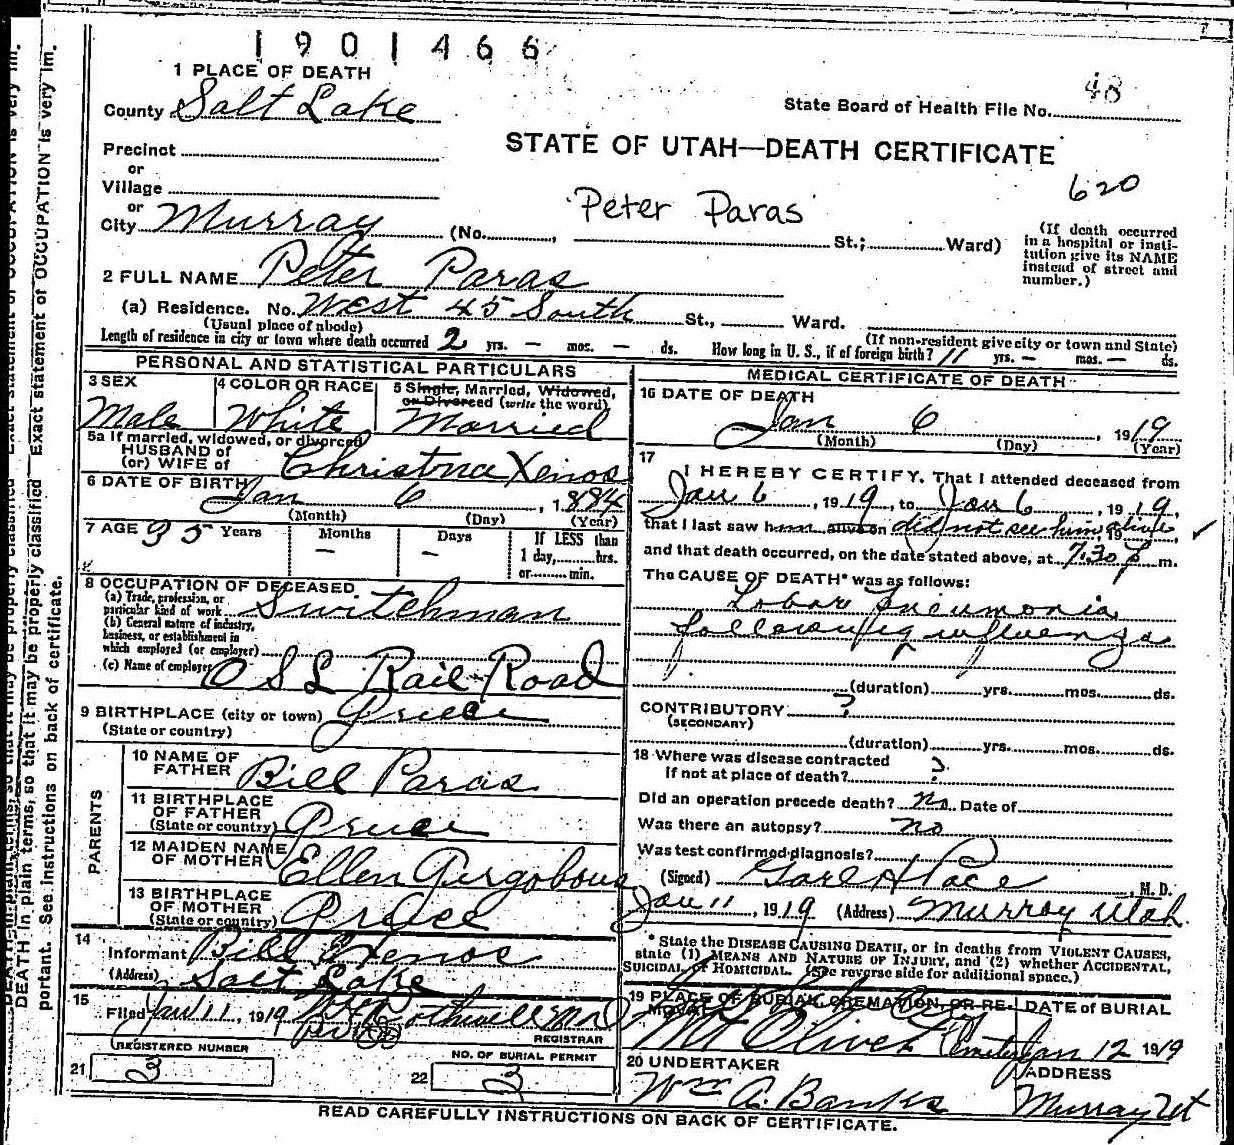 1901466
1 PLACE OF DEATH
County Salt Lake
State Board of Health File No. 48
STATE OF UTAH—DEATH CERTIFICATE
620
Precinct
or
Village
or
City Murray (No. , St.; Ward)
Peter Paras
(If death occurred in a hospital or insti-
tution give its NAME
instead of street and
number.)
2 FULL NAME Peter Paras
(a) Residence. No. West 45 South St., Ward.
(Usual place of abode)
(If non-resident give city or town and State)
Length of residence in city or town where death occurred 2 yrs. — mos. — ds. How long in U. S., if of foreign birth? 11 yrs. — mos. — ds.
PERSONAL AND STATISTICAL PARTICULARS
3 SEX
Male
4 COLOR OR RACE
White
5 Single, Married, Widowed,
or Divorced (write the word)
Married
5a If married, widowed, or divorced
HUSBAND of
(or) WIFE of Christina Xenos
6 DATE OF BIRTH
Jan 6, 1884
(Month) (Day) (Year)
7 AGE 35 Years Months — Days —
If LESS than
1 day, hrs.
or min.
8 OCCUPATION OF DECEASED
(a) Trade, profession, or
particular kind of work Switchman
(b) General nature of industry,
business, or establishment in
which employed (or employer)
(c) Name of employer O S L Rail Road
9 BIRTHPLACE (city or town) Greece
(State or country)
PARENTS
10 NAME OF
FATHER Bill Paras
11 BIRTHPLACE
OF FATHER
(State or country) Greece
12 MAIDEN NAME
OF MOTHER Ellen
13 BIRTHPLACE
OF MOTHER
(State or country) Greece
14
Informant Bill Xenos
(Address) Salt Lake
15
Filed Jan 11, 1919
REGISTRAR
REGISTERED NUMBER
21 3
NO. OF BURIAL PERMIT
22 3
MEDICAL CERTIFICATE OF DEATH
16 DATE OF DEATH
Jan 6, 1919
(Month) (Day) (Year)
17
I HEREBY CERTIFY, That I attended deceased from
Jan 6, 1919, to Jan 6, 1919,
that I last saw him alive on did not see him alive, 19 ,
and that death occurred, on the date stated above, at 7:30 p m.
The CAUSE OF DEATH* was as follows:
Lobar Pneumonia
following influenza
(duration) yrs. mos. ds.
CONTRIBUTORY ?
(SECONDARY)
(duration) yrs. mos. ds.
18 Where was disease contracted
if not at place of death? ?
Did an operation precede death? no Date of
Was there an autopsy? no
Was test confirmed diagnosis?
(Signed) Pace, M. D.
Jan 11, 1919 (Address) Murray Utah
* State the DISEASE CAUSING DEATH, or in deaths from VIOLENT CAUSES,
state (1) MEANS AND NATURE OF INJURY, and (2) whether ACCIDENTAL,
SUICIDAL, or HOMICIDAL. (See reverse side for additional space.)
19 PLACE OF BURIAL, CREMATION, OR RE-
MOVAL
Mt Olivet Cemetery
DATE of BURIAL
Jan 12 1919
20 UNDERTAKER
Wm A. Banks
ADDRESS
Murray Ut
READ CAREFULLY INSTRUCTIONS ON BACK OF CERTIFICATE.
DEATH in plain terms, so that it may be properly classified. Exact statement of OCCUPATION is very im-
portant. See instructions on back of certificate.